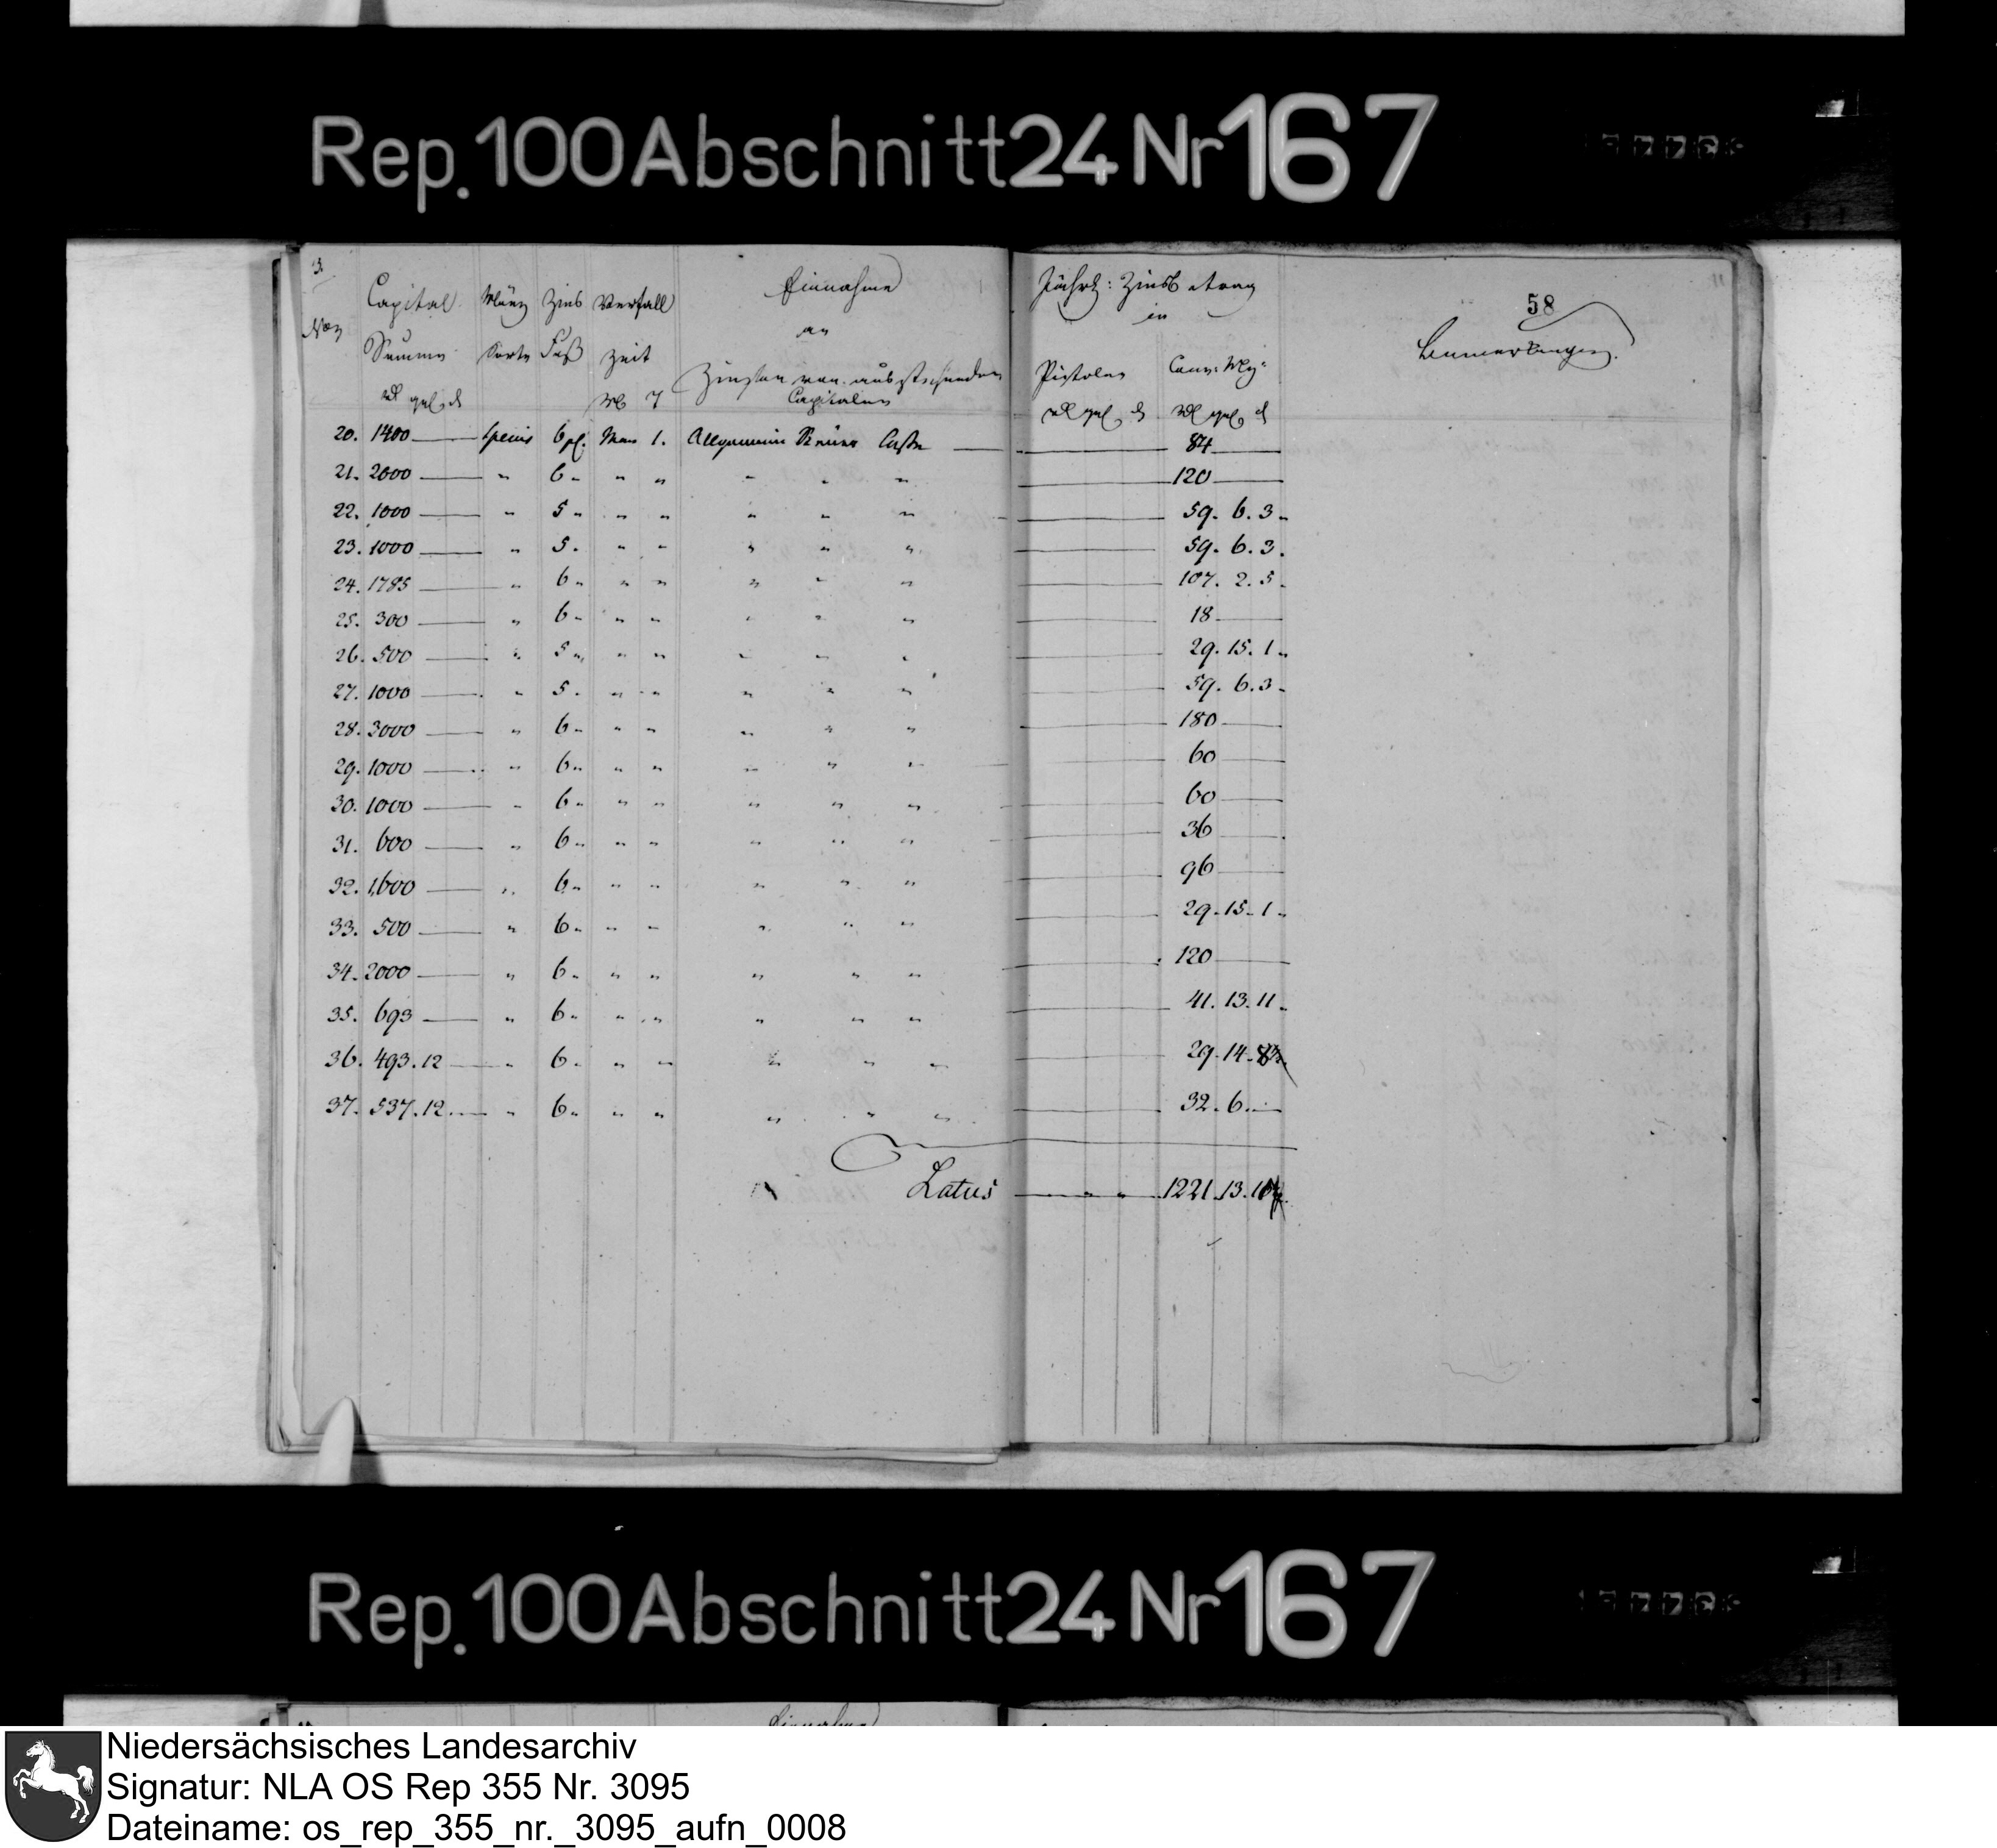 Rep. 100 Abschnitt 24 Nr 167
58
Capital Münz Zins Verfall Einnahme Jährl: Zinsbetrag Bemerkungen.
Summe Sorte Fuß Zeit an in
Zinsen von ausstehenden Capitalien Pistolen Conv: Mz:
20. 1400 Species 6 pC. May 1. Allgemeine Steuer Casse 84
21. 2000 " 6 " " " " " " 120
22. 1000 " 5 " " " " " " 59. 6. 3.
23. 1000 " 5. " " " " " 59. 6. 3.
24. 1785 " 6 " " " " " " 107. 2. 5.
25. 300 " 6 " " " " " " 18
26. 500 " 5 " " " " " " 29. 15. 1.
27. 1000 " 5. " " " " " 59. 6. 3.
28. 3000 " 6 " " " " " " 180
29. 1000 " 6 " " " " " " 60
30. 1000 " 6 " " " " " " 60
31. 600 " 6 " " " " " " 36
32. 1600 " 6 " " " " " " 96
33. 500 " 6 " " " " " " 29. 15. 1.
34. 2000 " 6 " " " " " " 120
35. 693 " 6 " " " " " " 41. 13. 11.
36. 493. 12 " 6 " " " " " " 29. 14.
37. 537. 12. " 6 " " " " " " 32. 6.
Latus " " 1221. 13.
Rep. 100 Abschnitt 24 Nr 167
Einnahme
Niedersächsisches Landesarchiv
Signatur: NLA OS Rep 355 Nr. 3095
Dateiname: os_rep_355_nr._3095_aufn_0008